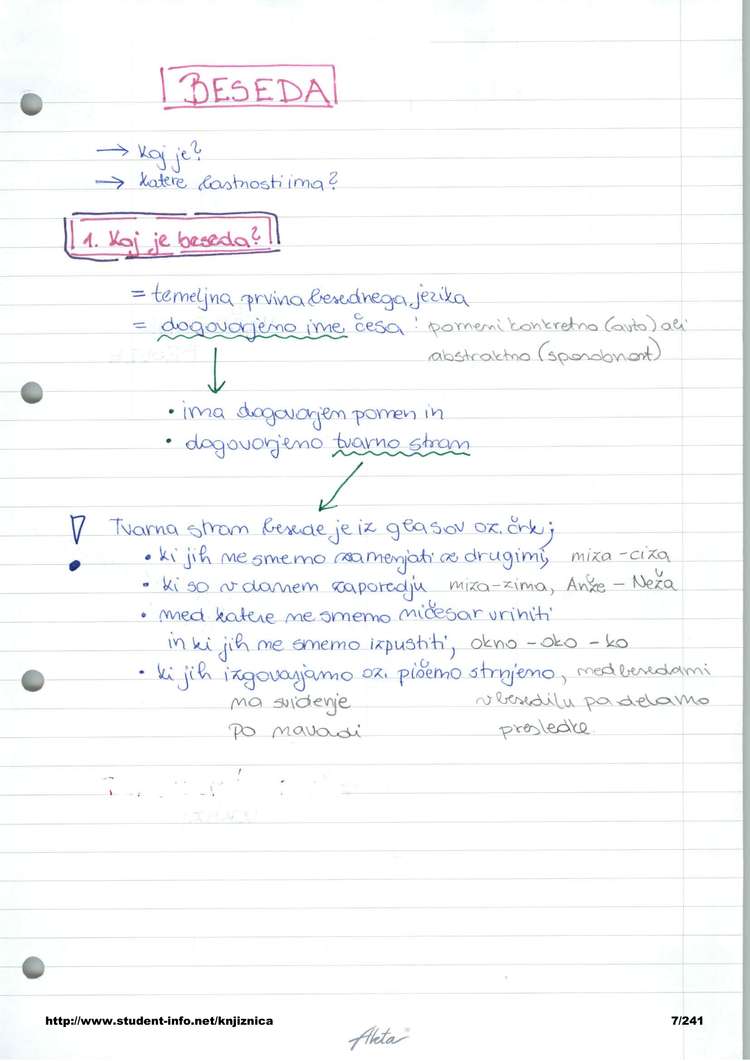 BESEDA
→ Kaj je?
→ Katere lastnosti ima?
1. Kaj je beseda?
= temeljna prvina besednega jezika
= dogovorjeno ime česa : pomeni konkretno (auto) ali
abstraktno (sposobnost)
• ima dogovorjen pomen in
• dogovorjeno tvarno stran
! Tvarna stran besede je iz glasov oz. črk;
• ki jih ne smemo zamenjati z drugimi, miza - ciza
• ki so v danem zaporedju miza - zima, Anže - Neža
• med katere ne smemo ničesar vriniti
in ki jih ne smemo izpustiti, okno - oko - ko
• ki jih izgovarjamo oz. pišemo strnjeno, med besedami
na svidenje v besedilu pa delamo
po navadi presledke.
http://www.student-info.net/knjiznica 7/241
Akta